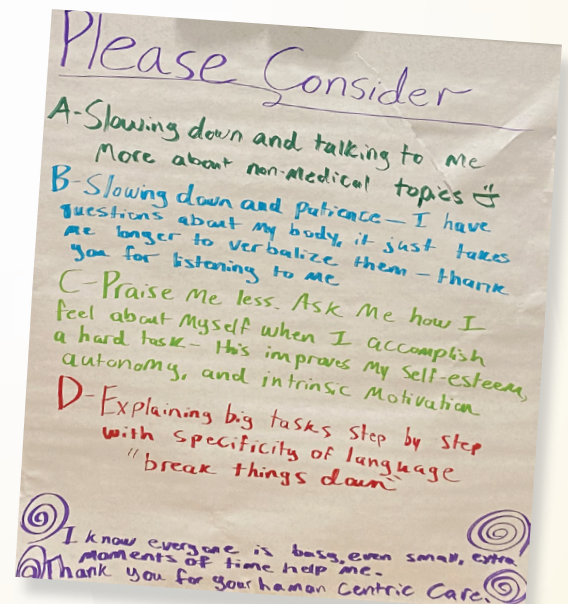 Please Consider
A-Slowing down and talking to me
More about non-medical topics
B-Slowing down and patience - I have
questions about my body, it just takes
me longer to verbalize them - thank
you for listening to me
C-Praise Me less. Ask Me how I
feel about Myself when I accomplish
a hard task - this improves My self-esteem,
autonomy, and intrinsic Motivation
D-Explaining big tasks step by step
with specificity of language
"break things down"
I know everyone is busy, even small, extra
moments of time help me.
Thank you for your human centric care.